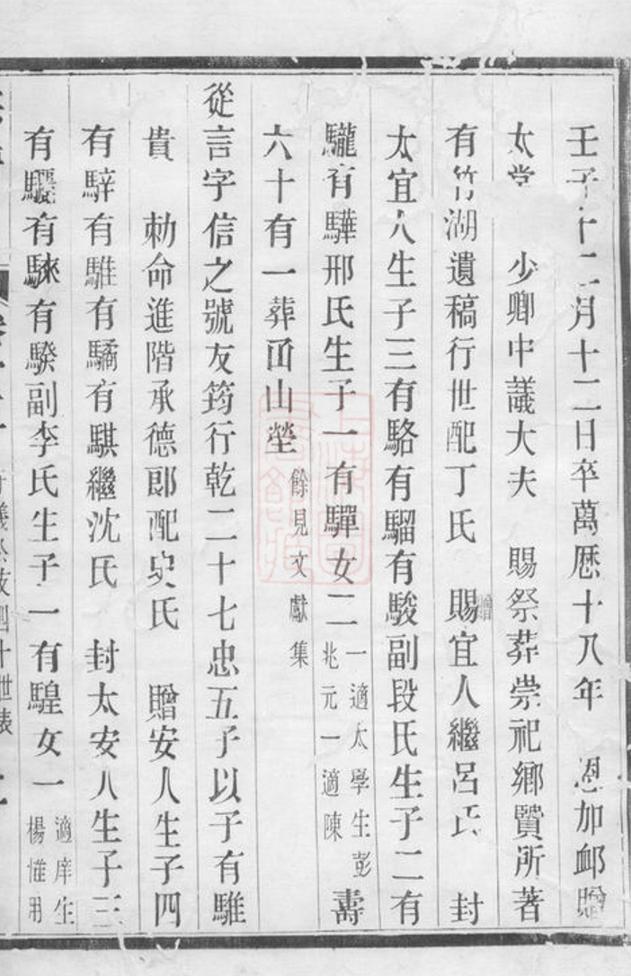 壬子十二月十二日卒萬厯十八年 恩加卹贈
太常 少卿中議大夫 賜祭葬崇祀鄉賢所著
有竹湖遺稿行世配丁氏 贈賜宜人繼呂氏 封
太宜人生子三有駱有騮有駿副段氏生子二有
驪有驊邢氏生子一有驒女二一適太學生彭兆元一適陳壽
六十有一葬畱山塋餘見文獻集
從言字信之號友筠行乾二十七忠五子以子有騅
貴 勅命進階承德郎配史氏 贈安人生子四
有騂有騅有驕有騏繼沈氏 封太安人生子三
有驥有騋有騤副李氏生子一有騜女一適庠生楊惟用